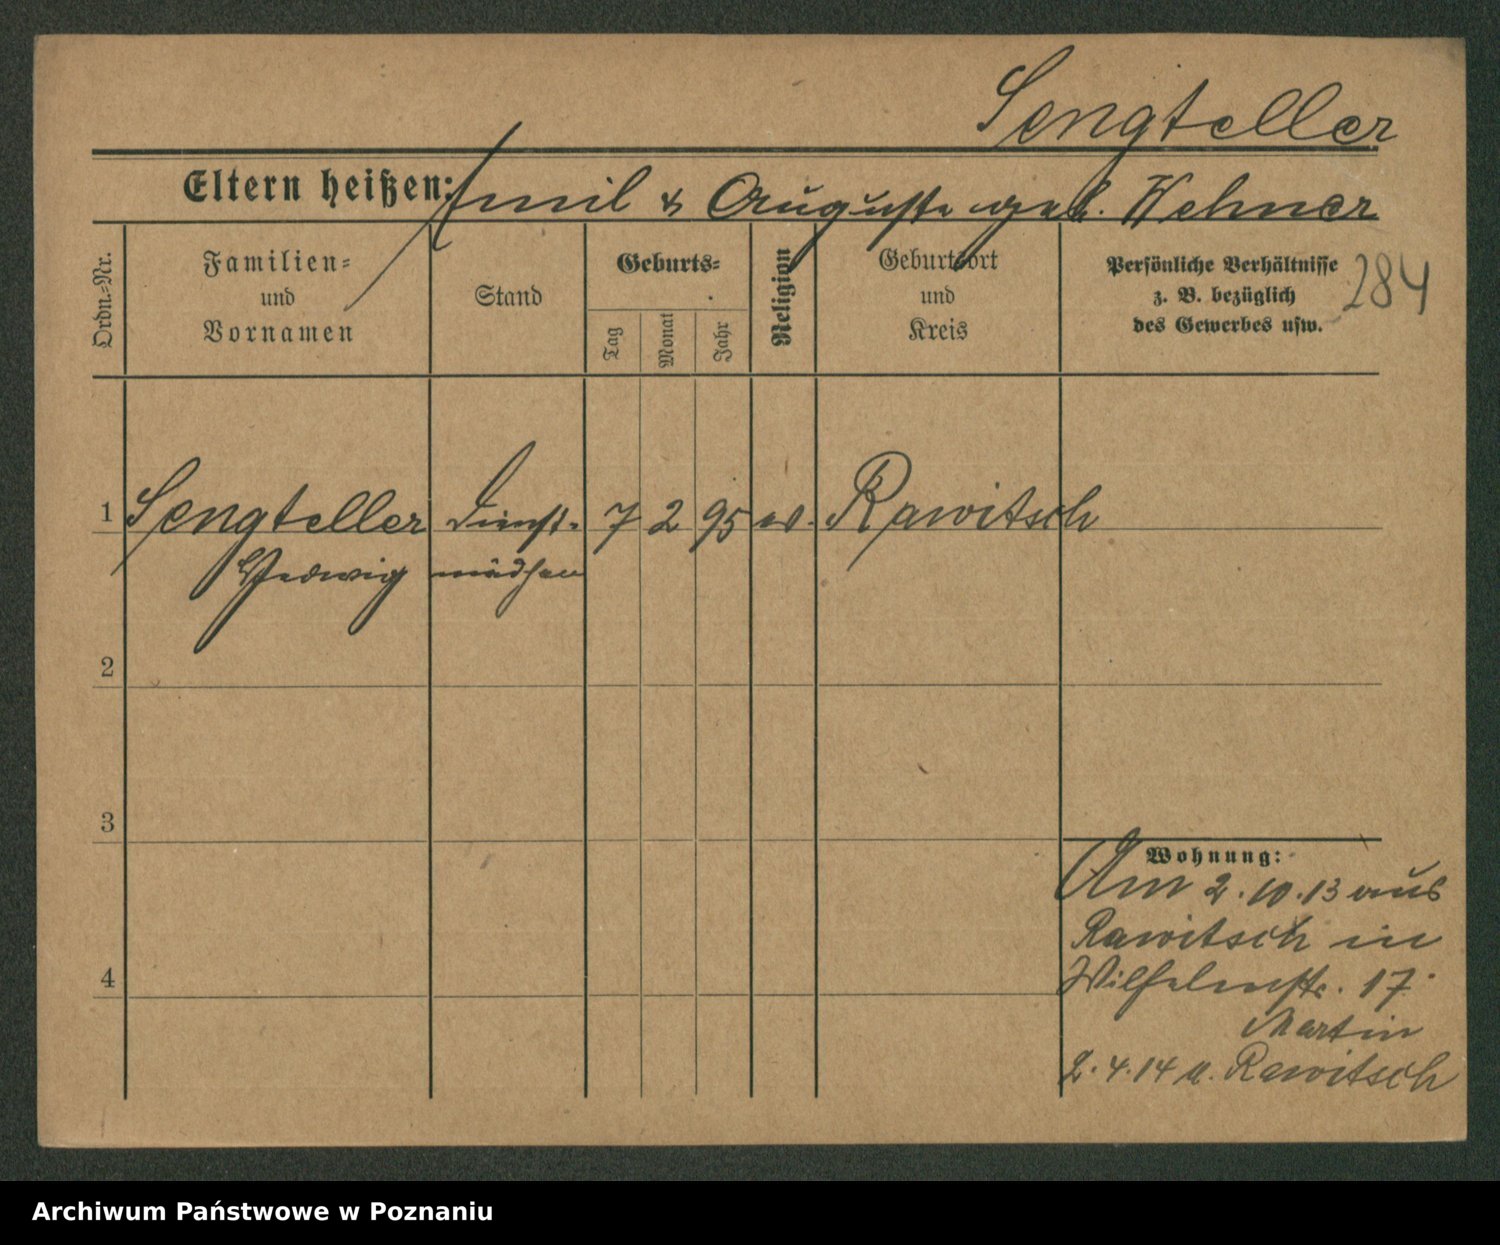 Sengteller
Eltern heißen: Emil & Auguste geb. Wehner
Ordn.-Nr.
Familien-
und
Vornamen
Stand
Geburts-
Tag
Monat
Jahr
Religion
Geburtsort
und
Kreis
Persönliche Verhältnisse
z. B. bezüglich
des Gewerbes usw.
284
1 Sengteller Dienst- 7 2 95 ev. Rawitsch
Hedwig mädchen
2
3
4
Wohnung:
Am 2.10.13 aus
Rawitsch in
Wilhelmstr. 17.
Martin
2.4.14 n. Rawitsch
Archiwum Państwowe w Poznaniu